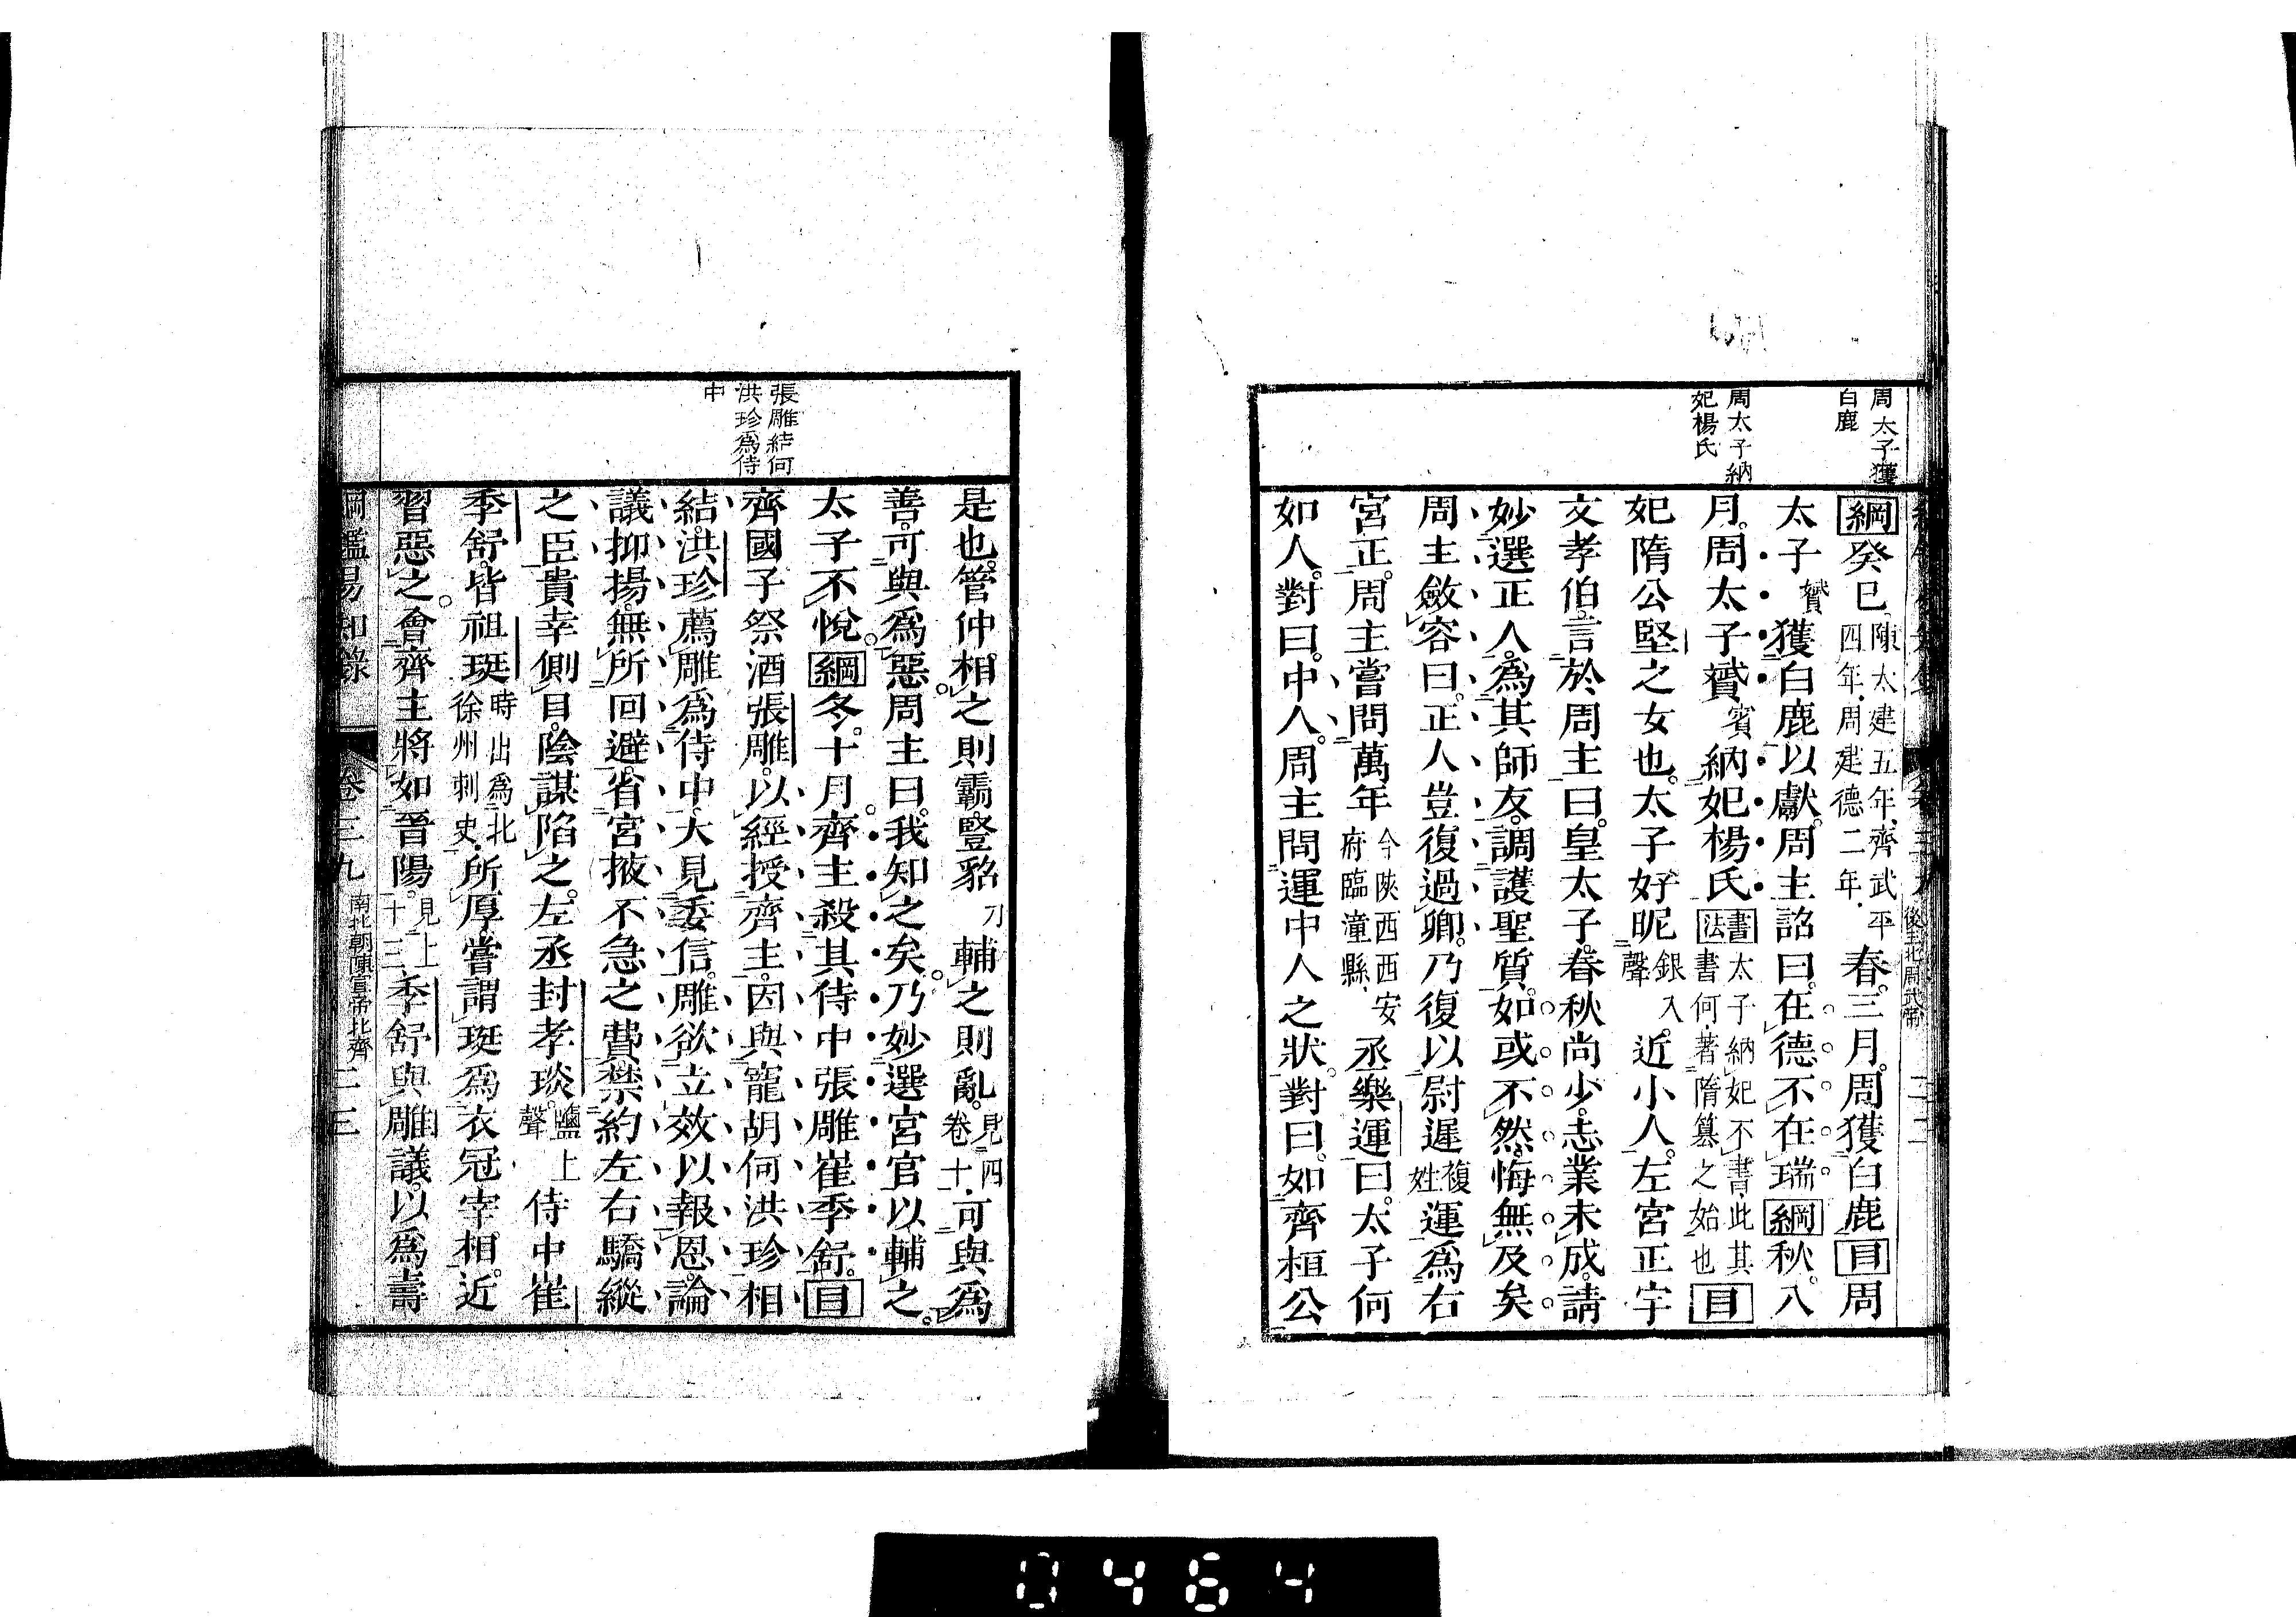 周太子獲
白鹿
周太子納
妃楊氏
綱癸巳陳太建五年齊武平四年周建德二年春三月周獲白鹿目周
太子贇獲白鹿以獻周主詔曰在德不在瑞綱秋八
月周太子贇賓納妃楊氏書法書太子納妃不書此其書何著隋篡之始也目
妃隋公堅之女也太子好昵銀入聲近小人左宮正宇
文孝伯言於周主曰皇太子春秋尚少志業未成請
妙選正人為其師友調護聖質如或不然悔無及矣
周主斂容曰正人豈復過卿乃復以尉遲複姓運為右
宮正周主嘗問萬年今陝西西安府臨潼縣丞樂運曰太子何
如人對曰中人周主問運中人之狀對曰如齊桓公
張雕結何
洪珍為侍
中
是也管仲相之則霸豎貂刀輔之則亂見四卷十一可與為
善可與為惡周主曰我知之矣乃妙選宮官以輔之
太子不悅綱冬十月齊主殺其侍中張雕崔季舒目
齊國子祭酒張雕以經授齊主因與寵胡何洪珍相
結洪珍薦雕為侍中大見委信雕欲立效以報恩論
議抑揚無所回避省宮掖不急之費禁約左右驕縱
之臣貴幸側目陰謀陷之左丞封孝琰鹽上聲侍中崔
季舒皆祖珽時出為北徐州刺史所厚嘗謂珽為衣冠宰相近
習惡之會齊主將如晉陽見上十三季舒與雕議以為壽
綱鑑易知錄 卷三九 南北朝陳宣帝北齊 二三
後主北周武帝 二二
0464